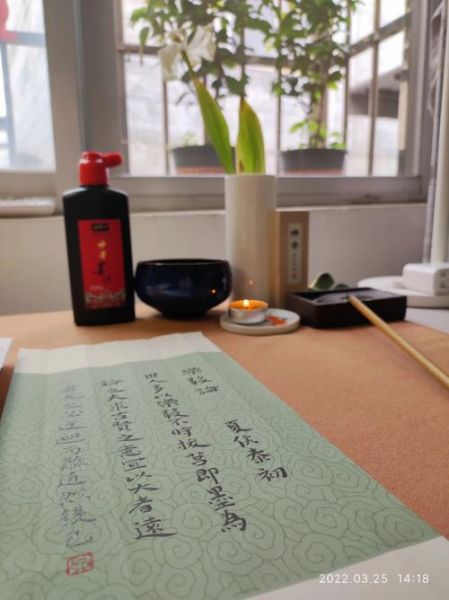 樂毅論
夏侯泰初
世人多以樂毅不時拔莒即墨為
論之夫求古賢之意宜以大者遠
者先之必迂迴而難通然後已
2022.03.25 14:18